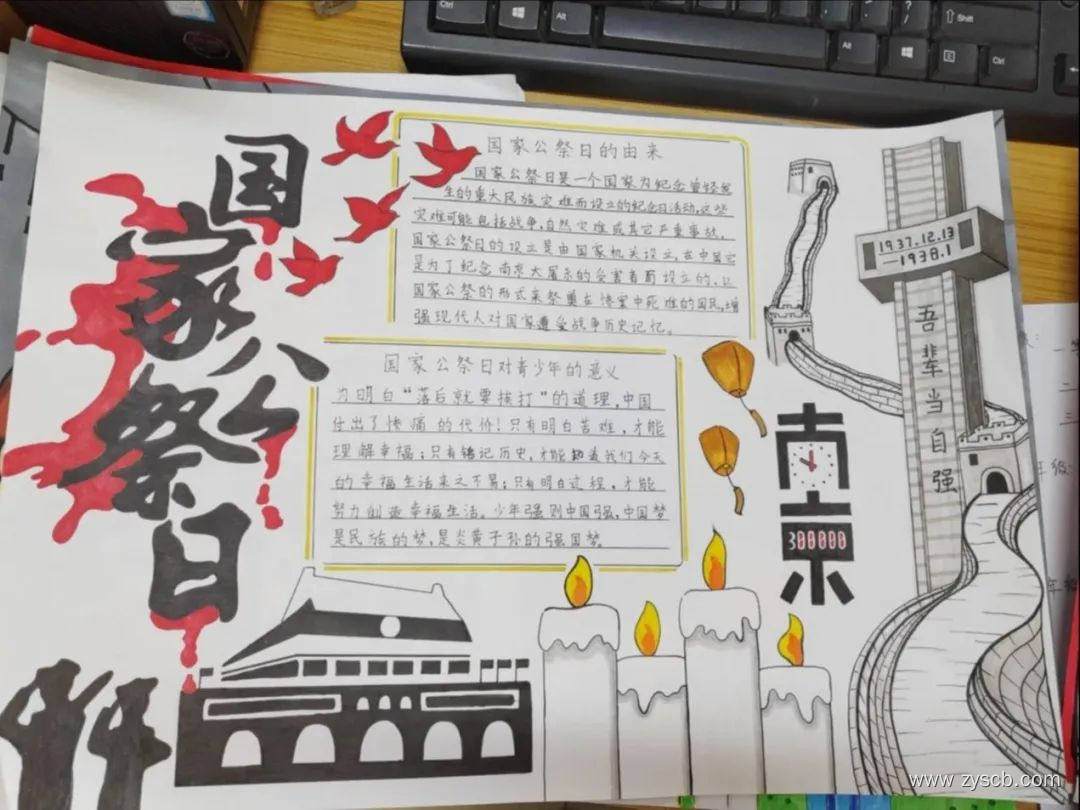 国家公祭日
国家公祭日的由来
国家公祭日是一个国家为纪念曾经发
生的重大民族灾难而设立的纪念日活动,这些
灾难可能包括战争,自然灾难或其它严重事故.
国家公祭日的设立是由国家机关设立,在中国它
是为了纪念南京大屠杀的受害者而设立的,以
国家公祭的形式来祭奠在惨案中死难的国民,增
强现代人对国家遭受战争历史记忆。
国家公祭日对青少年的意义
为明白“落后就要挨打”的道理,中国
付出了惨痛的代价!只有明白苦难,才能
理解幸福;只有铭记历史,才能知道我们今天
的幸福生活来之不易;只有明白过程,才能
努力创造幸福生活。少年强则中国强,中国梦
是民族的梦,是炎黄子孙的强国梦。
1937.12.13
—1938.1
吾辈当自强
南京
300000
Ctrl
Alt
Alt
Shift
Ctrl
www.zyscb.com